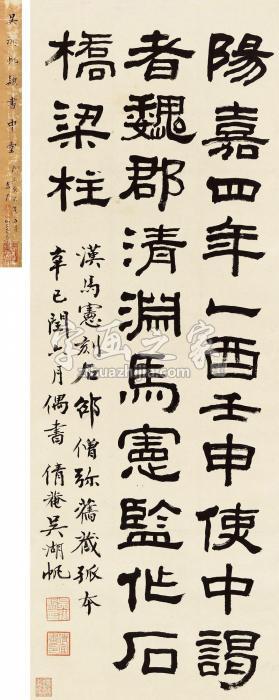 陽嘉四年一酉壬申使中謁
者魏郡清淵馬憲監作石
橋梁柱
漢馬憲刻石邵僧弥舊藏孤本
辛巳閏六月偶書 倩庵吳湖帆
吳湖帆隸書中堂
字画之家
zizuazhijia.com